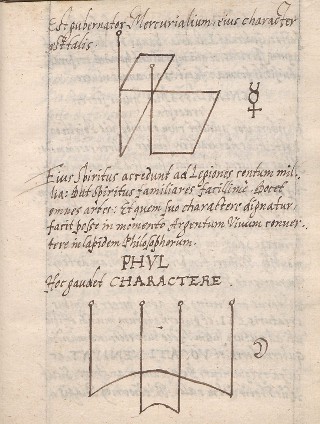 Est gubernator Mercurialium: eius character
est talis
Eius Spiritus accedunt ad Legiones centum mil-
lia: Dat Spiritus familiares facillime. Docet
omnes artes: Et quem suo charactere dignatur,
facit posse in momento Argentum Vivum conver-
tere in lapidem Philosophorum.
PHUL
Hoc gaudet CHARACTERE.